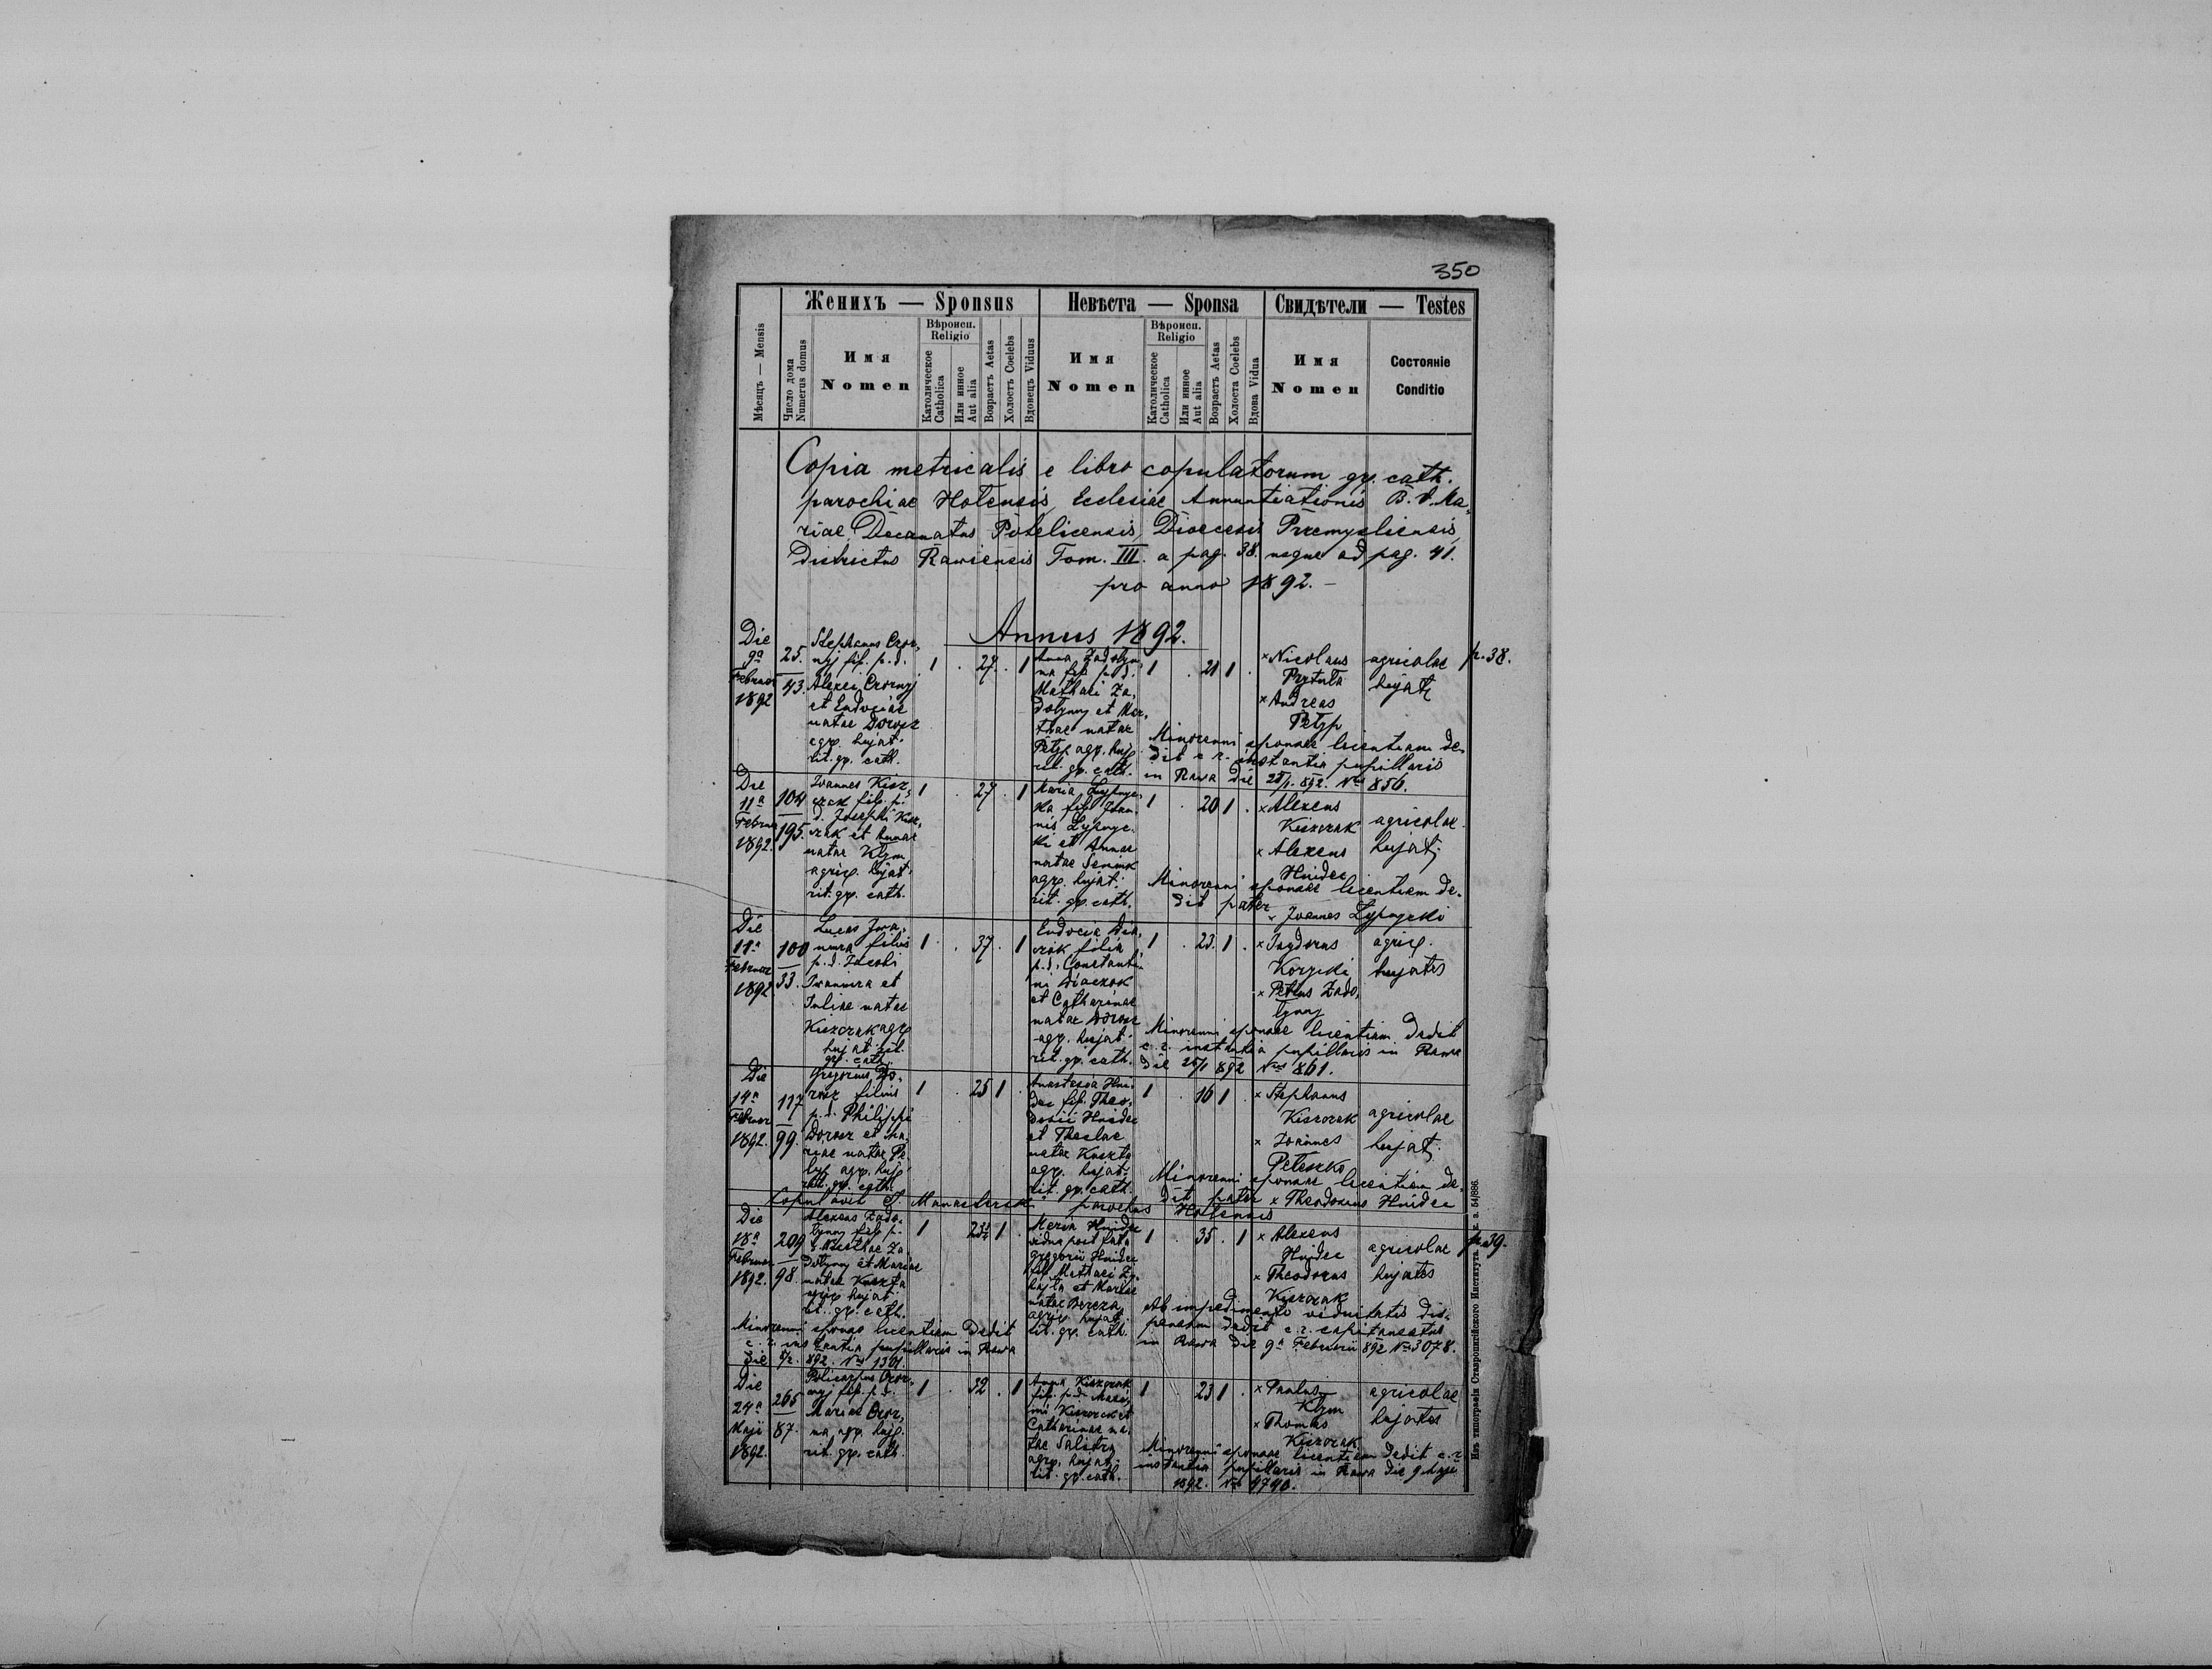 350
Женихъ — Sponsus
Невѣста — Sponsa
Свидѣтели — Testes
Мѣсяцъ — Mensis
Число дома
Numerus domus
Имя
Nomen
Вѣроисп.
Religio
Католическое
Catholica
Или инное
Aut alia
Возрастъ Aetas
Холостъ Coelebs
Вдовецъ Viduus
Имя
Nomen
Вѣроисп.
Religio
Католическое
Catholica
Или инное
Aut alia
Возрастъ Aetas
Холоста Coelebs
Вдова Vidua
Имя
Nomen
Состояніе
Conditio
Copia metricalis e libro copulatorum gr. cath.
parochiae Holensis, Ecclesiae Annuntiationis B. V. Ma-
riae, Decanatus Potelicensis, Dioecesis Przemysliensis,
Districtus Rawensis Tom. III. a pag. 38. usque ad pag. 41.
pro anno 1892. –
Annus 1892.
Die
9a
Februar
1892
25.
43.
Stephanus Czor-
nyj fil. p. d.
Alexei Czornyj
et Eudociae
natae Dorosz
agr. hujat.
rit. gr. cath.
1 . 27 . 1
Anna Zadolyn-
na fil. p. d.
Mathaei Za-
dolynny et Mar-
thae natae
Petyp agr. huj.
rit. gr. cath.
1 . 21 1 .
× Nicolaus
Prytula
× Andreas
Petyp
agricolae
hujat.
p. 38.
Minorenni sponsae licentiam de-
dit c. r. instantia pupillaris
in Rawa die 28/1. 892. Nro 856.
Die
11a
Februar
1892.
104
195.
Ioannes Kisz-
czak fil. p.
d. Josephi Kisz-
czak et Annae
natae Klym
agric. hujat.
rit. gr. cath.
1 . 27 . 1
Maria Lypnyc-
ka fil. Ioan-
nis Lypnyc-
ki et Annae
natae Seniuk
agr. hujat.
rit. gr. cath.
1 . 20 1 .
× Alexeus
Kiszczak
× Alexeus
Hnidec
agricolae
hujat.
Minorenni sponsae licentiam de-
dit pater
× Ioannes Lypnycki
Die
11a
Februar
1892
100
33.
Lucas Iwa-
nura filius
p. d. Iacobi
Iwannura et
Iuliae natae
Kiszczak agr.
hujat. rit.
gr. cath.
1 . 37 . 1
Eudocia Dia-
czok filia
p. d. Constanti-
ni Diaczok
et Catharinae
natae Dorosz
agr. hujat.
rit. gr. cath.
1 . 23. 1 .
× Isydorus
Korzicki
× Petrus Zado-
lynny
agric.
hujates
Minorenni sponsae licentiam dedit
c. r. instantia pupillaris in Rawa
die 28/1 892 Nro 861.
Die
14a
Februar
1892.
117
99.
Gregorius Do-
rosz filius
p. d. Philippi
Dorosz et Ma-
riae natae Pe-
typ agr. huj.
rit. gr. cath.
1 . 25 1 .
Anastasia Hni-
dec fil. Theo-
dosii Hnidec
et Theclae
natae Kuszta
agr. hujat.
rit. gr. cath.
1 . 16 1 .
× Stephanus
Kiszczak
× Ioannes
Peteszko
agricolae
hujat.
Minorenni sponsae licentiam de-
dit pater × Theodosius Hnidec
Copulavit parochus Holensis
Die
18a
Februar
1892.
209
98.
Alexeus Zado-
lynny fil. p.
Zadolynny et Mariae
natae Kuszta
agric. hujat.
rit. gr. cath.
1 1 .
Maria Hnidec
vidua post fata
Gregorii Hnidec
fil. Mathaei
et Marthae
natae Bereza
agric. hujat.
rit. gr. cath.
1 . 35 . 1
× Alexeus
Hnidec
× Theodorus
Kiszczak
agricolae
hujates
p. 39.
Minorenni sponso licentiam dedit
c. r. instantia pupillaris in Rawa
die 5/2. 892. Nro 1301.
Ab impedimento viduitatis dis-
pensam dedit c. r. capitaneatus
in Rawa die 9a Februarii 892 Nro 3078.
Die
24a
Maji
1892.
265
87.
Policarpus Czor-
nyj fil. p. d.
Mariae Czor-
na agr. hujat.
rit. gr. cath.
1 . 32 . 1
Anna Kiszczak
fil. p. d. Maxi-
mi Kiszczak et
Catharinae na-
tae Salitra
agr. hujat.
rit. gr. cath.
1 . 23 1 .
× Paulus
Klym
× Thomas
Kiszczak
agricolae
hujates
Minorenni sponsae licentiam dedit c. r.
instantia pupillaris in Rawa die 9 Maji
1892. Nro 4740.
Изъ типографіи Ставропигійского Института. к. з. 54/886.